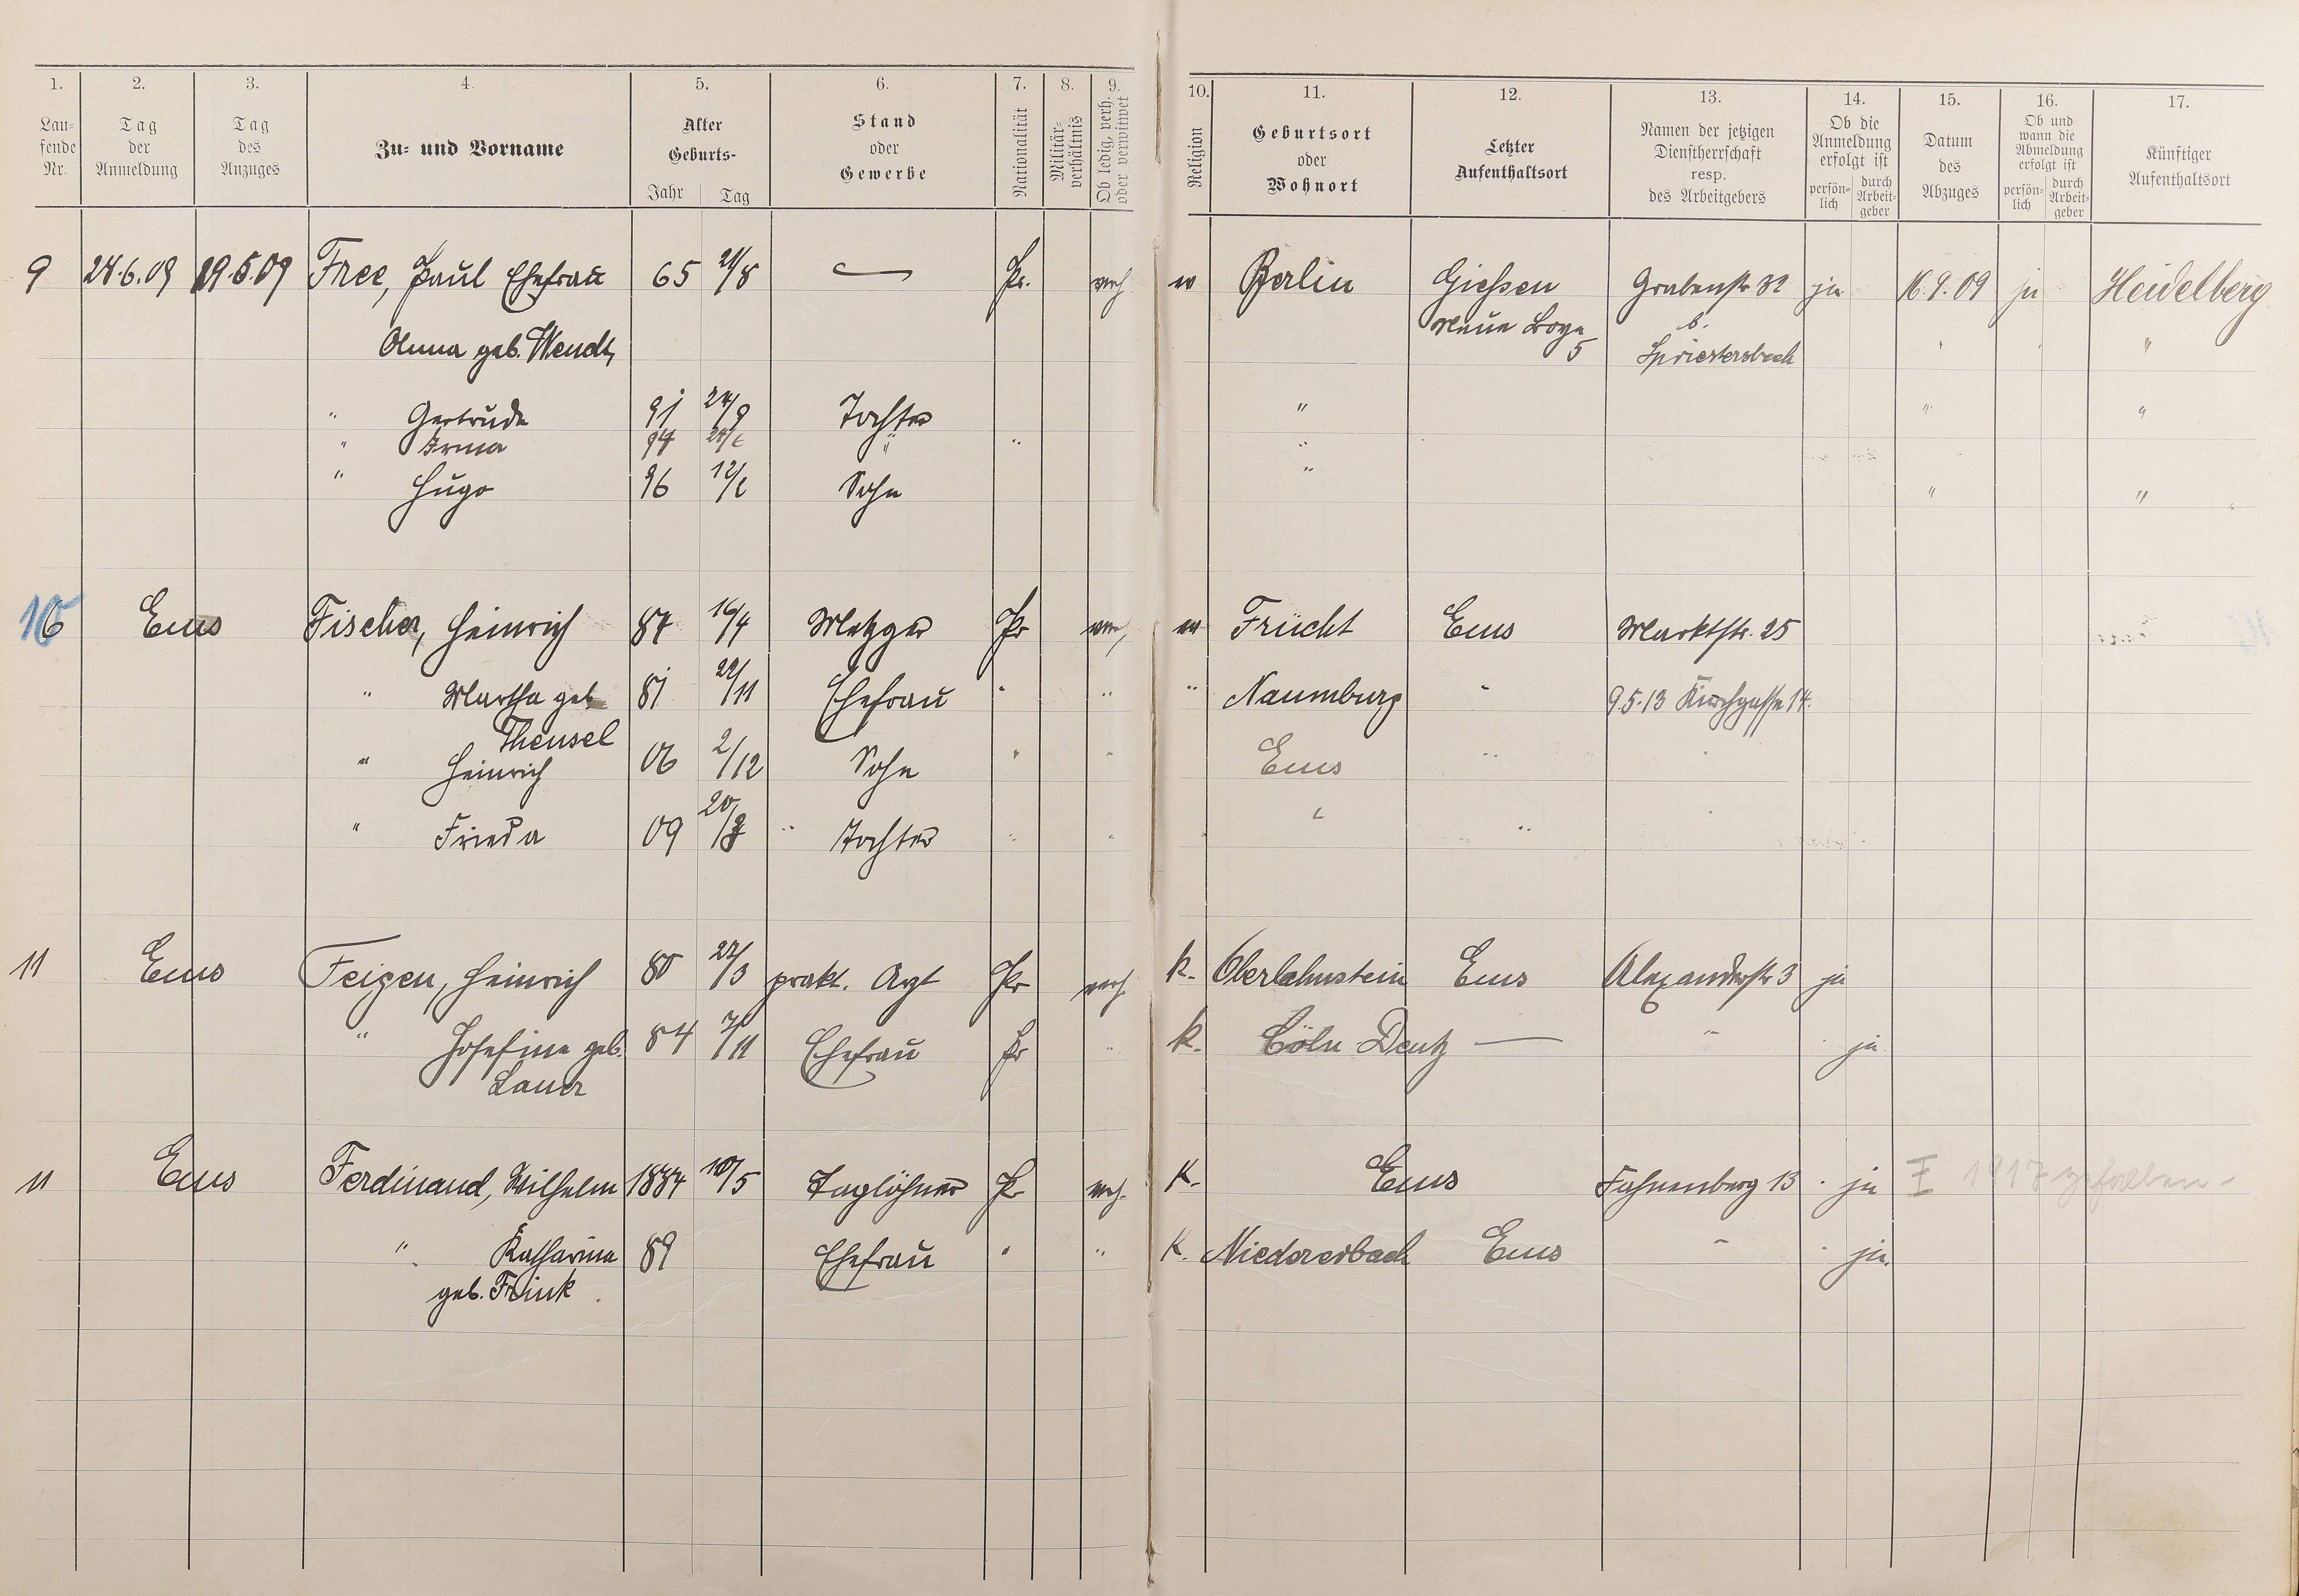 1. 2. 3. 4. 5. 6. 7. 8. 9. 10. 11. 12. 13. 14. 15. 16. 17.
Lau-
fende
Nr.
Tag
der
Anmeldung
Tag
des
Anzuges
Zu- und Vorname
Alter
Geburts-
Jahr Tag
Stand
oder
Gewerbe
Nationalität
Militär-
verhältnis
Ob ledig, verh.
oder verwitwet
Religion
Geburtsort
oder
Wohnort
Letzter
Aufenthaltsort
Namen der jetzigen
Dienstherrschaft
resp.
des Arbeitgebers
Ob die
Anmeldung
erfolgt ist
persön-
lich
durch
Arbeit-
geber
Datum
des
Abzuges
Ob und
wann die
Abmeldung
erfolgt ist
persön-
lich
durch
Arbeit-
geber
Künftiger
Aufenthaltsort
9 24.6.09 19.5.09 Free, Paul Ehefrau 65 21/8 — Pr. verh ev Berlin Giessen Grabenstr 32 ja 16.9.09 ja Heidelberg
Anna geb. Wendt Neue 5 b. Spriestersbach " " "
" Gertrude 91 24/9 Tochter " " "
" Irma 94 " " "
" Hugo 96 12/6 Sohn " " "
10 Ems Fischer, Heinrich 84 16/4 Metzger Pr verh ev Frücht Ems Marktstr. 25
" Martha geb 81 22/11 Ehefrau " " " Naumburg " 9.5.13 Kirchgasse 14.
Theusel
" Heinrich 06 2/12 Sohn " " Ems "
" Frieda 09 Tochter " " " "
11 Ems Feigen, Heinrich 80 22/3 prakt. Arzt Pr verh. k. Oberlahnstein Ems Alexanderstr 3 ja
" Josefine geb. 84 7/11 Ehefrau Pr " k. Cöln Deutz — " ja
Lauer
11 Ems Ferdinand, Wilhelm 1884 10/5 Taglöhner Pr verh. K. Ems Fahnenberg 13 ja 1917 gefallen.
" Katharina 89 Ehefrau " " K. Niedererbach Ems " ja.
geb. Frink